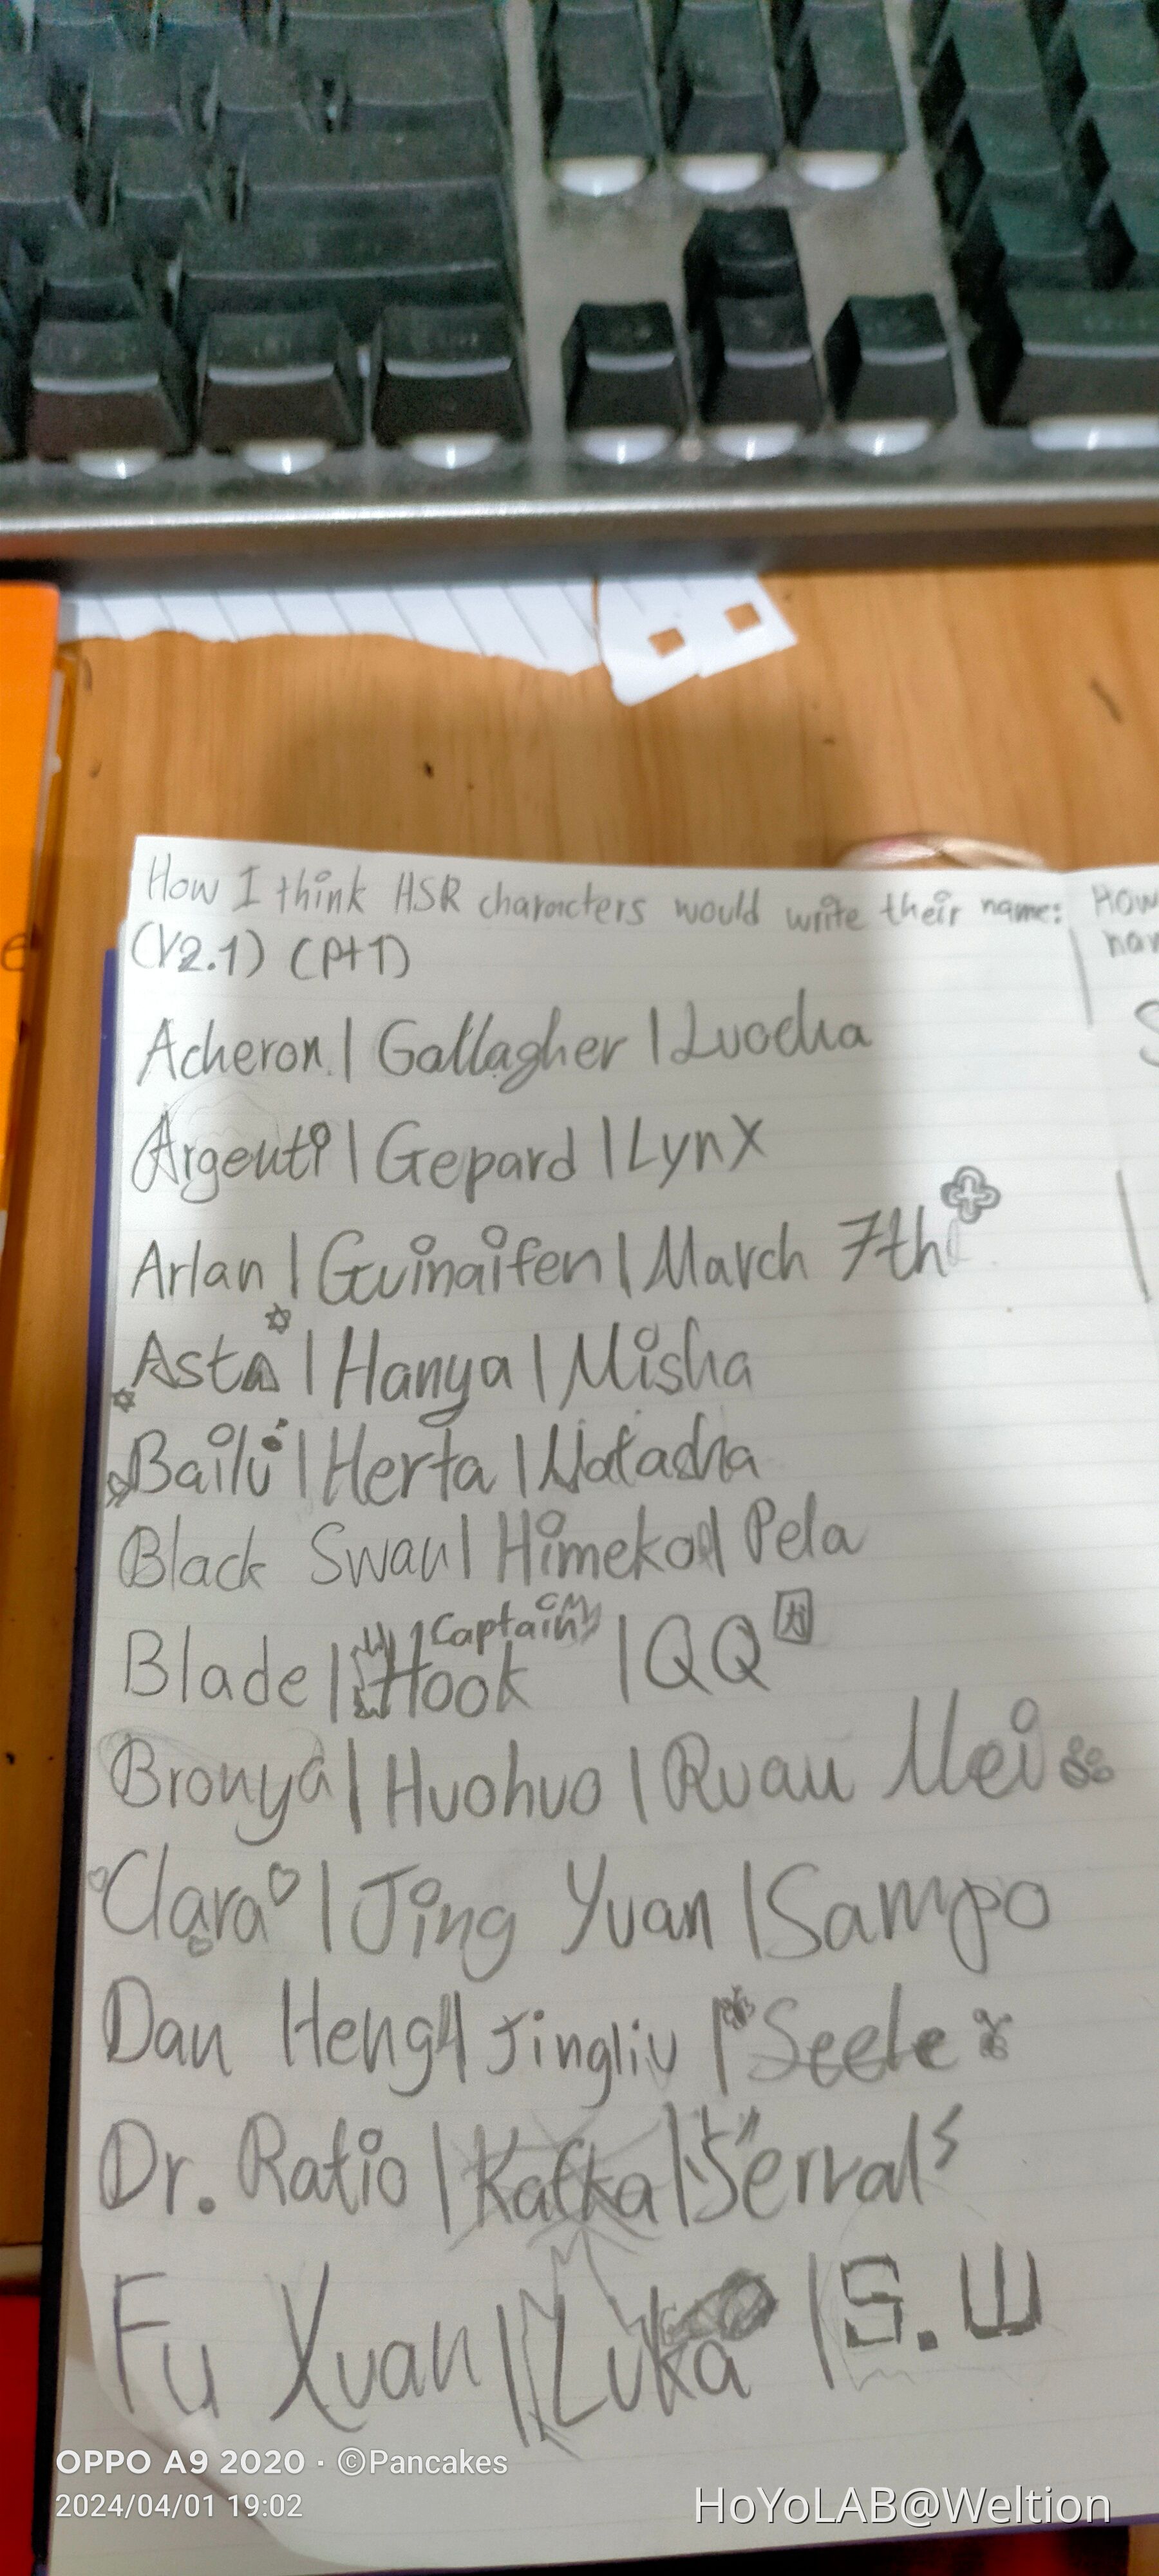 How I think HSR characters would write their name:
(V2.1) (pt1)
Acheron | Gallagher | Luocha
Argenti | Gepard | Lynx
Arlan | Guinaifen | March 7th
Asta | Hanya | Misha
Bailu | Herta | Natasha
Black Swan | Himeko | Pela
Captain
Blade | Hook | QQ
Bronya | Huohuo | Ruan Mei
Clara | Jing Yuan | Sampo
Dan Heng | Jingliu | Seele
Dr. Ratio | Kafka | Serval
Fu Xuan | Luka | S.W
How
OPPO A9 2020 · ©Pancakes
2024/04/01 19:02
HoYoLAB@Weltion